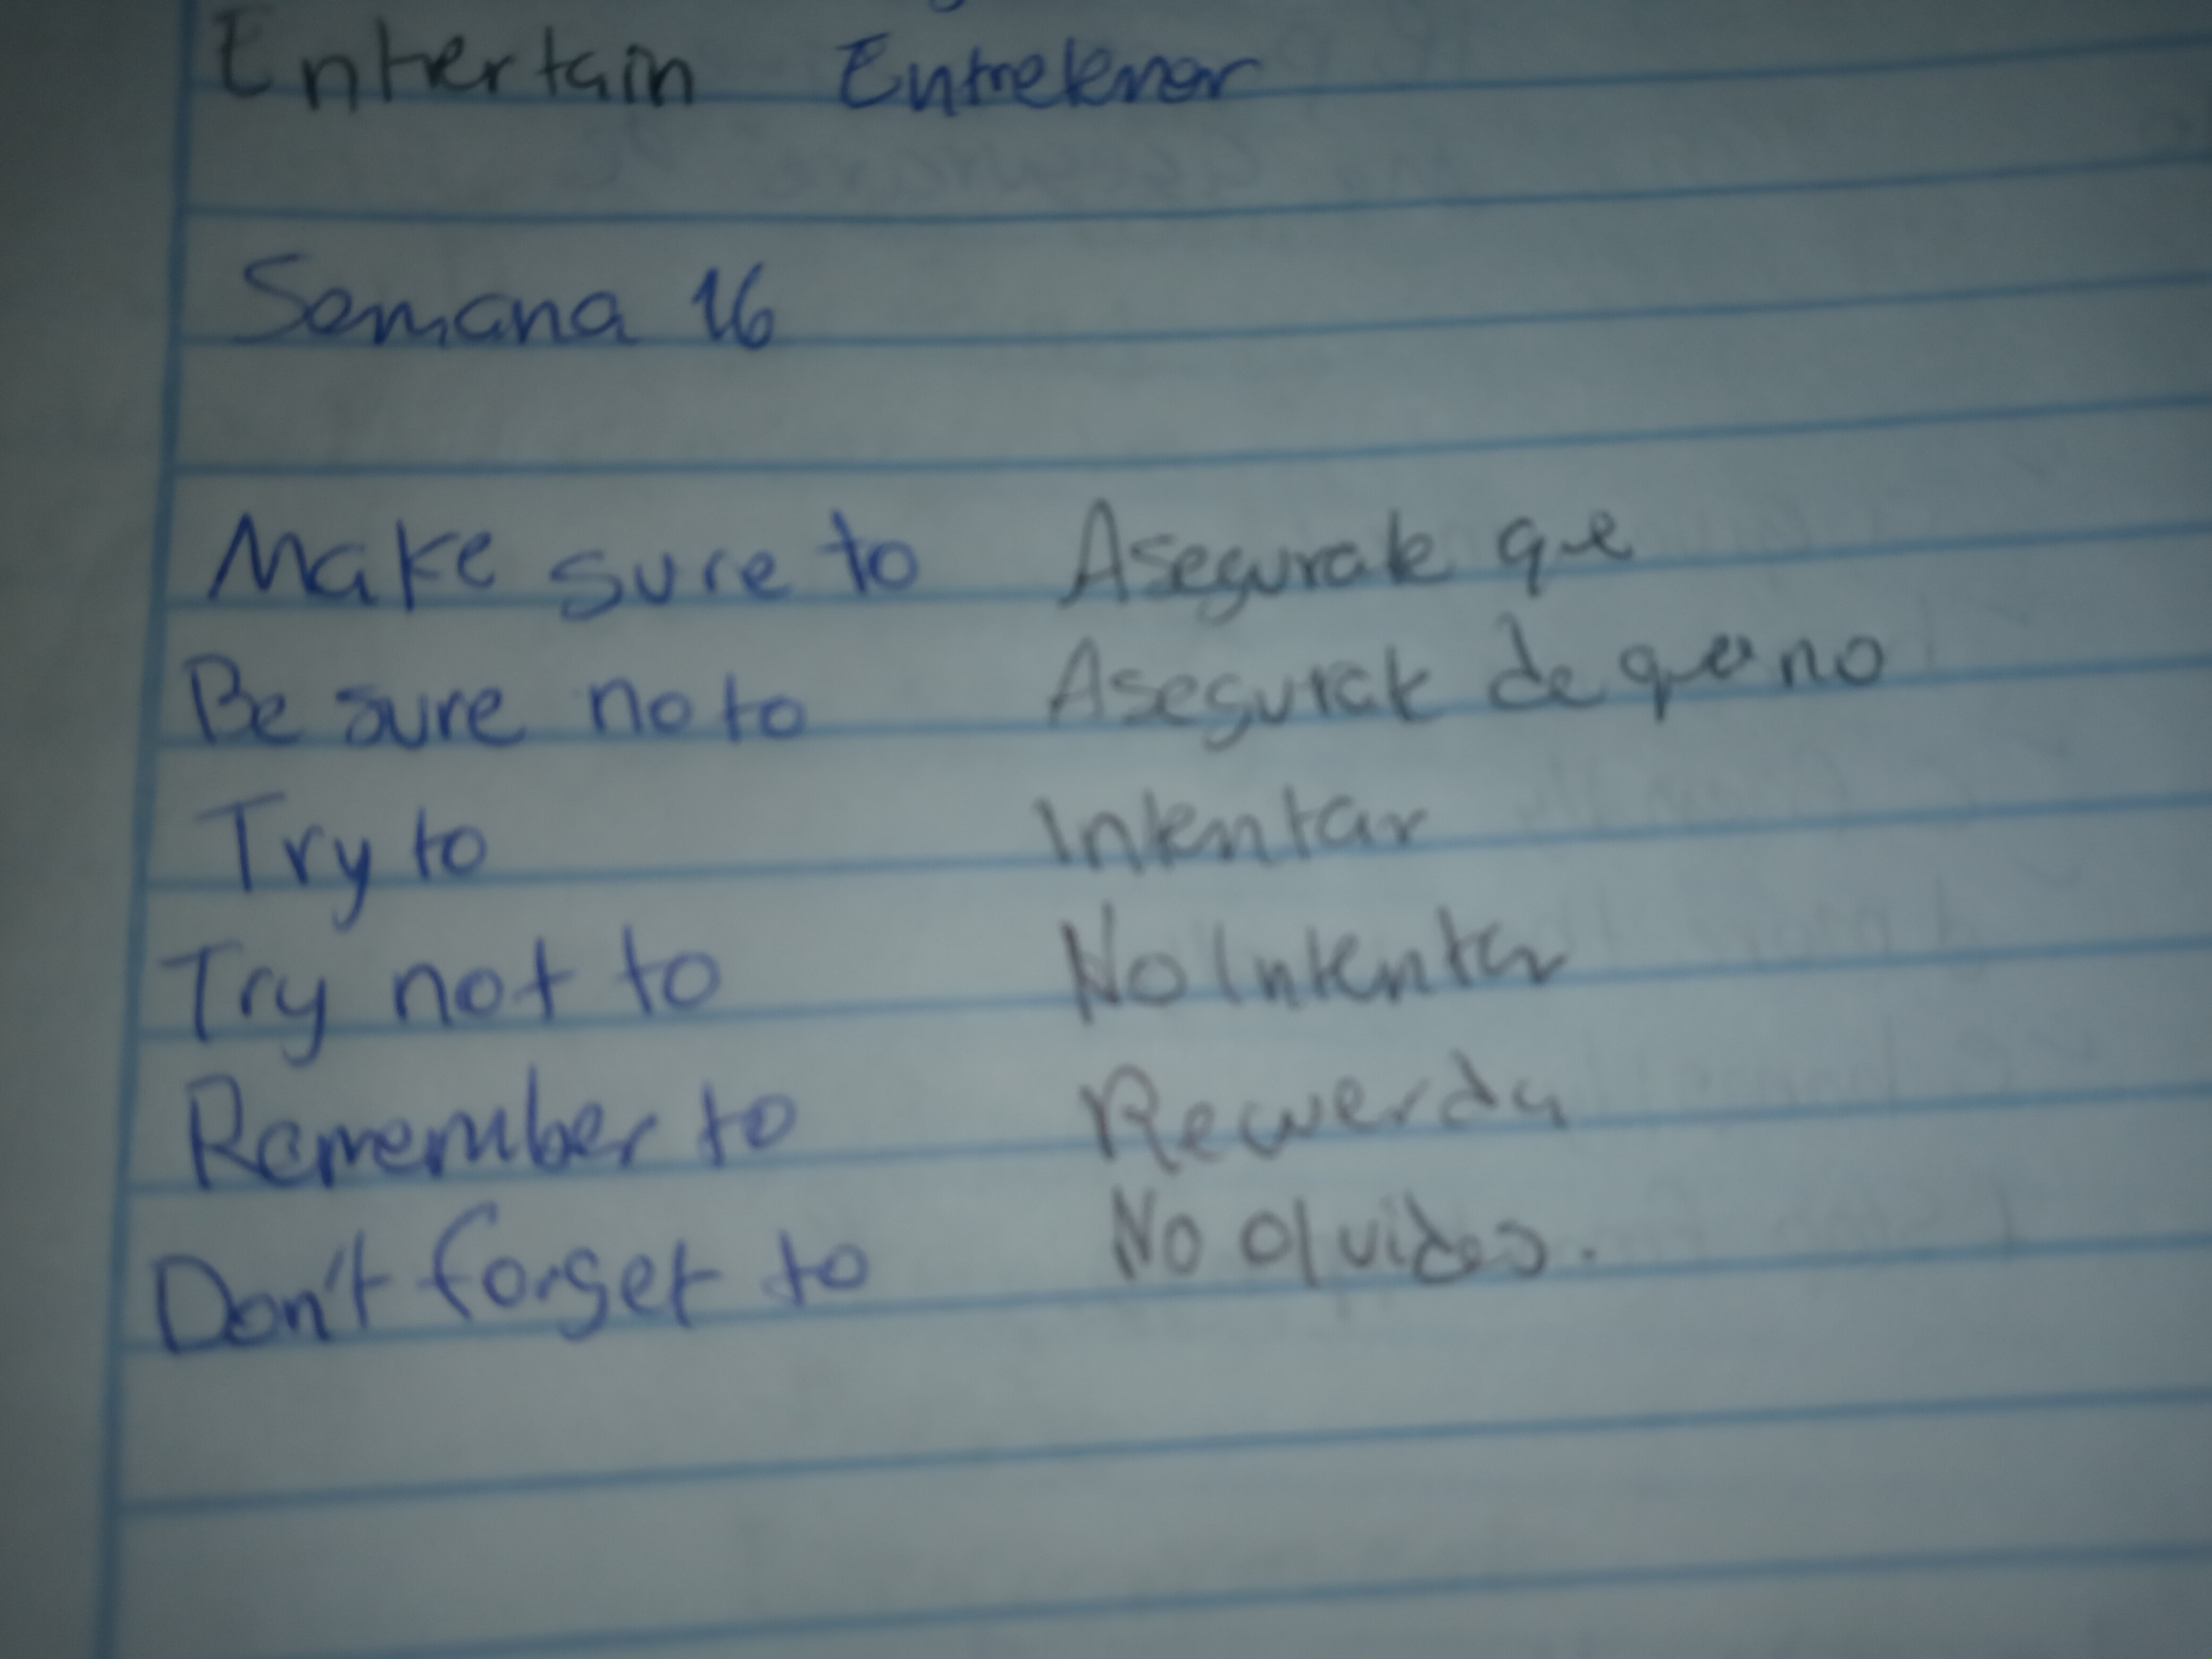 Entertain Entretener
Semana 16
Make sure to Asegurate que
Be sure no to Asegurate de que no
Try to Intentar
Try not to No Intentar
Remember to Recuerda
Don't forget to No olvides.